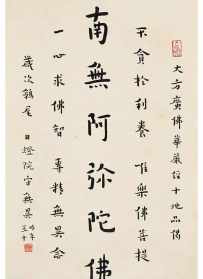 大方廣佛華嚴經十地品偈
不貪於利養 唯樂佛菩提
南無阿彌陀佛
一心求佛智 專精無異念
歲次鶉尾